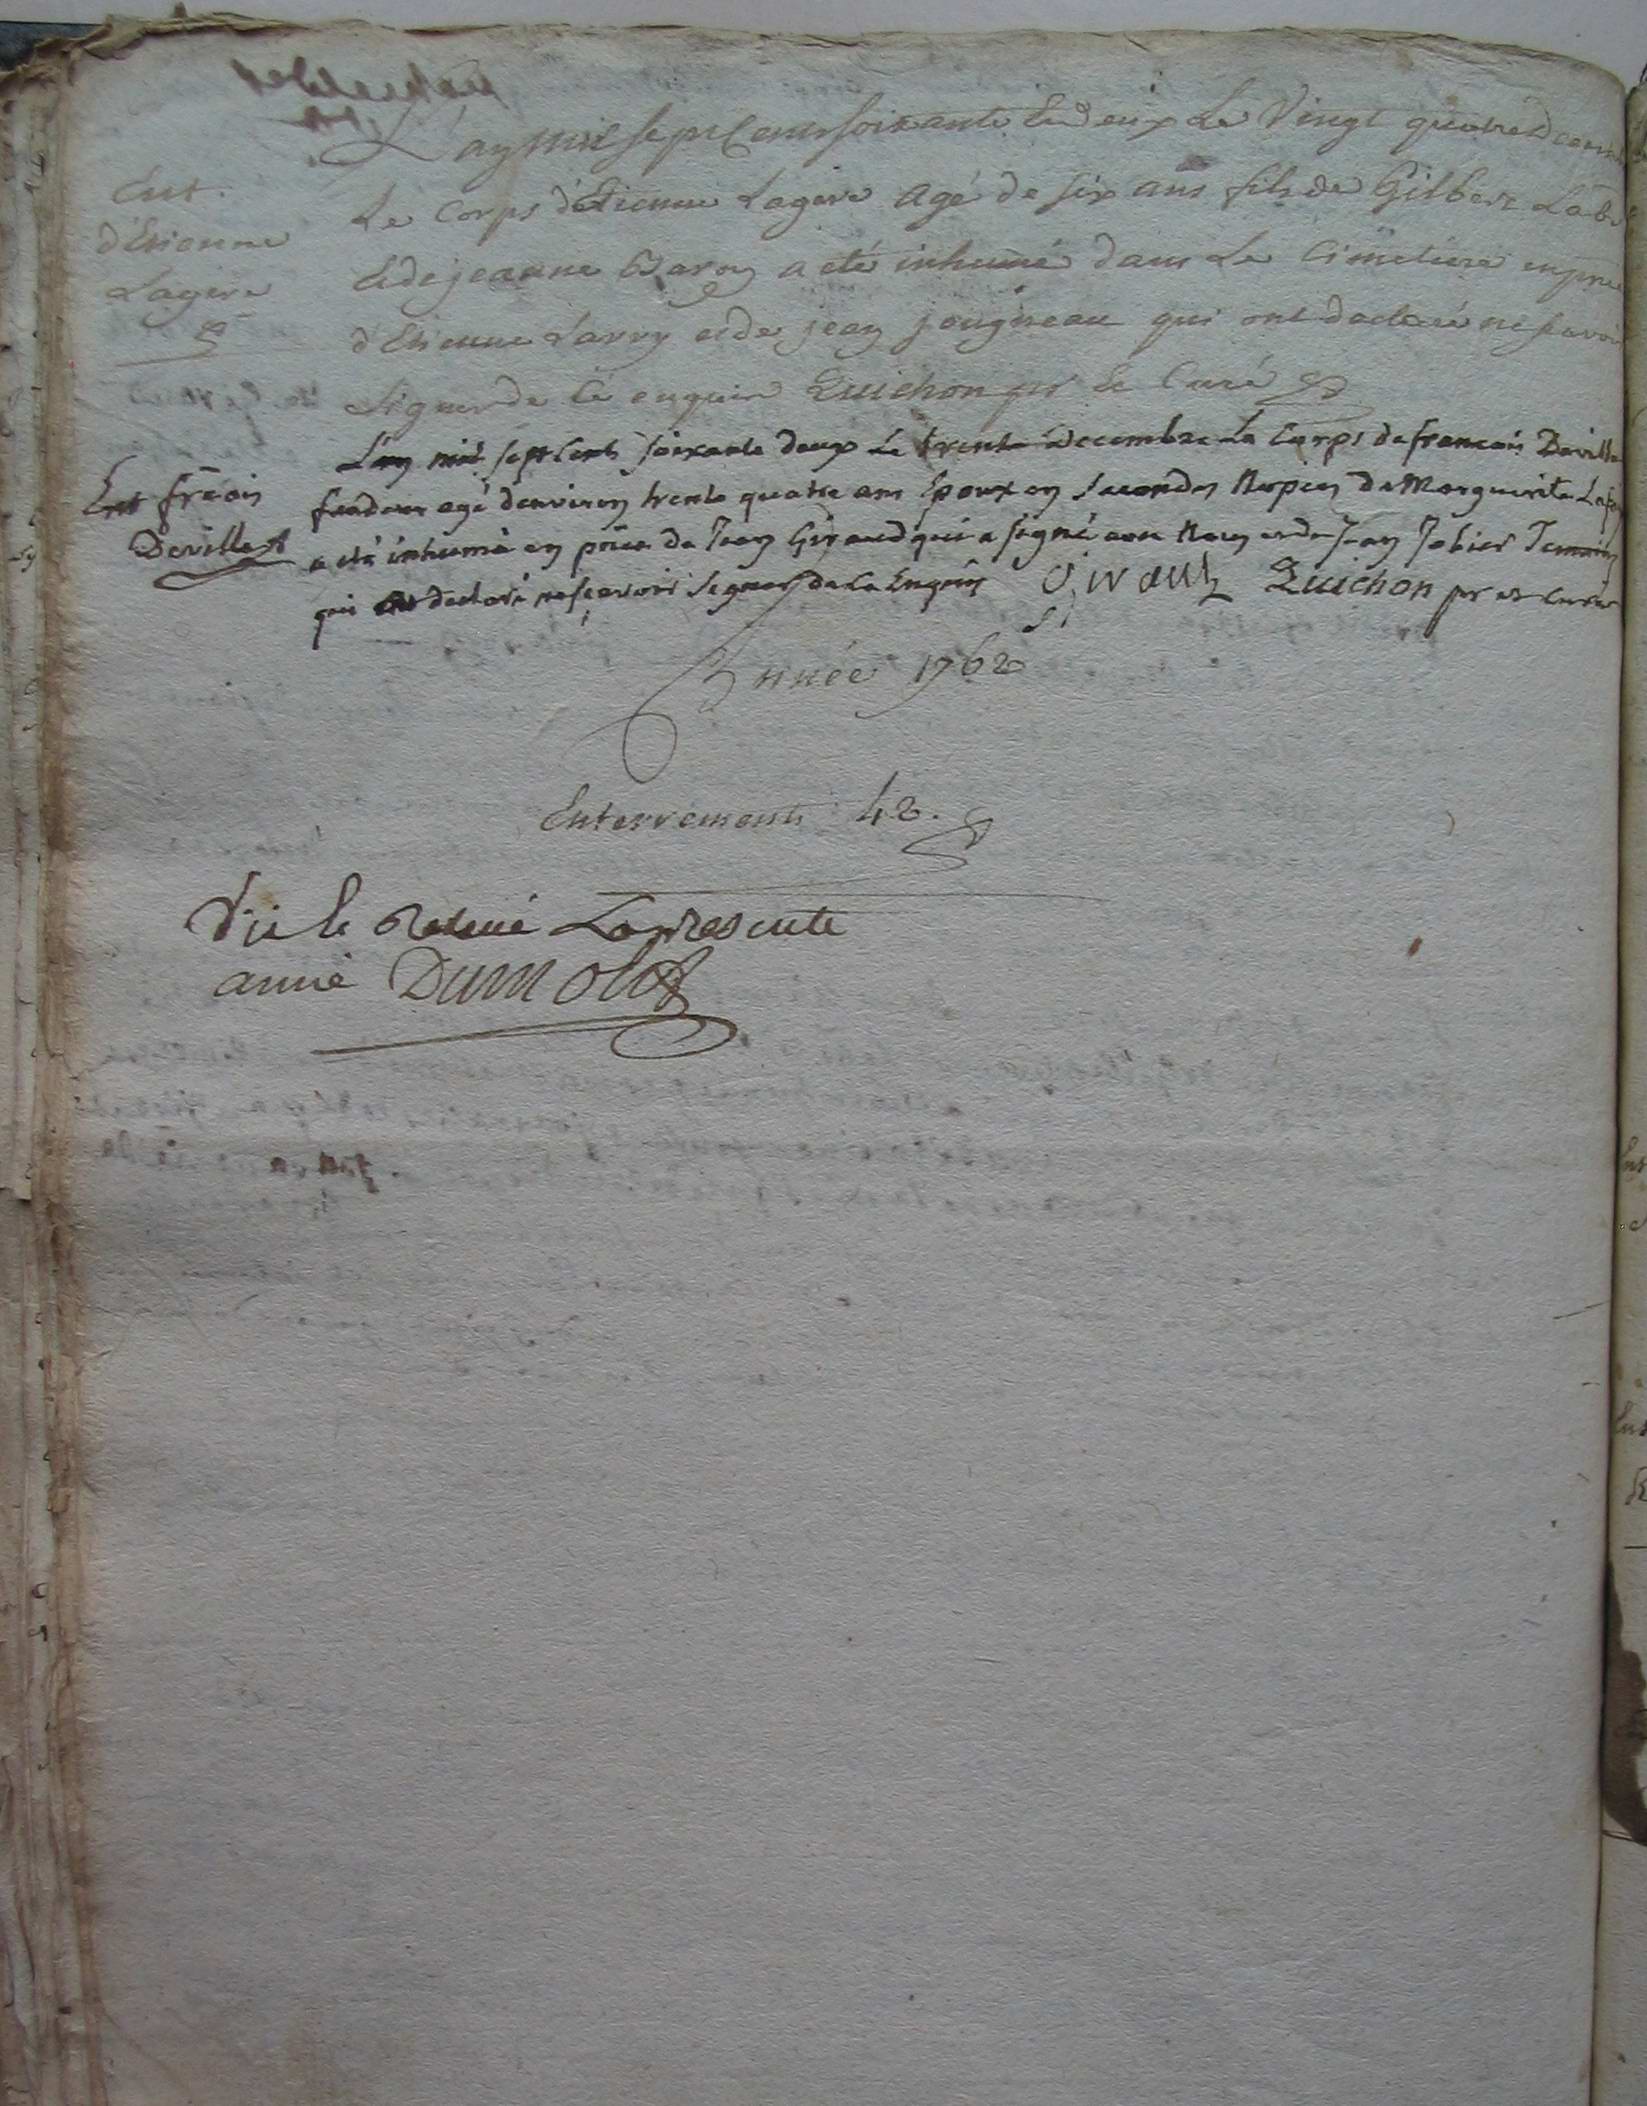 L'an mil sept Cens soixante Et deux Le Vingt quatre
Ent.
d'Etienne
Lagere
Le Corps d'Etienne Lagere agé de six ans fils de Gilbert
et de jeanne Baron a eté inhumé dans Le Cimetiere
d'Etienne Larry et de jean jougneau qui ont declaré ne scavoir
signer de ce enquis Quichon pr et Curé
Ent frãois
Deville
L'an mil sept Cents soixante deux Le trente Decembre Le Corps de francois Deville
fendeur agé denviron trente quatre ans Epoux en secondes Nopces de Marguerite
a eté inhumé en pñce de Jean Giraud qui a signé avec Nous et de Jean Jobier Temoins
qui ont declaré ne scavoir signer de ce Enquis Giraud Quichon pr et curé
Année 1762
Enterrements 42.
Vü le Relevé La presente
anné Dumolot